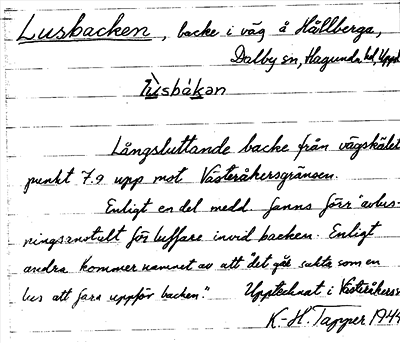 Lusbacken, backe i väg å Hållberga,
Dalby sn, Hagunda hd, Uppl
Långsluttande backe från vägskälet
punkt 7.9 upp mot Västeråkersgränsen.
Enligt en del medd. fanns förr "avlus-
ningsanstalt för luffare invid backen. Enligt
andra kommer namnet av att "det går sakta som en
lus att fara uppför backen." Upptecknat i Västeråkers
K.-H. Tapper 1944